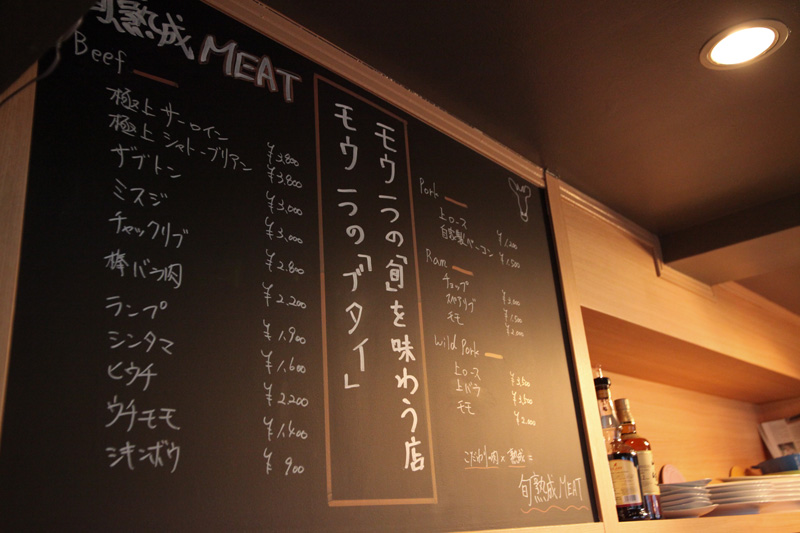 旬熟成 MEAT
Beef
極上 サーロイン ¥3,800
極上 シャトーブリアン ¥3,800
ザブトン ¥3,000
ミスジ ¥3,000
チャックリブ ¥2,800
棒バラ肉 ¥2,200
ランプ ¥1,900
シンタマ ¥1,600
ヒウチ ¥2,200
ウチモモ ¥1,400
シキンボウ ¥900
モウ一つの「旬」を味わう店
モウ一つの「ブタイ」
Pork
上ロース ¥1,200
自家製ベーコン ¥1,500
Ram
チョップ ¥2,000
スペアリブ ¥1,500
モモ ¥2,000
Wild Pork
上ロース
上バラ
モモ ¥2,000
こだわり肉×熟成=
旬熟成MEAT